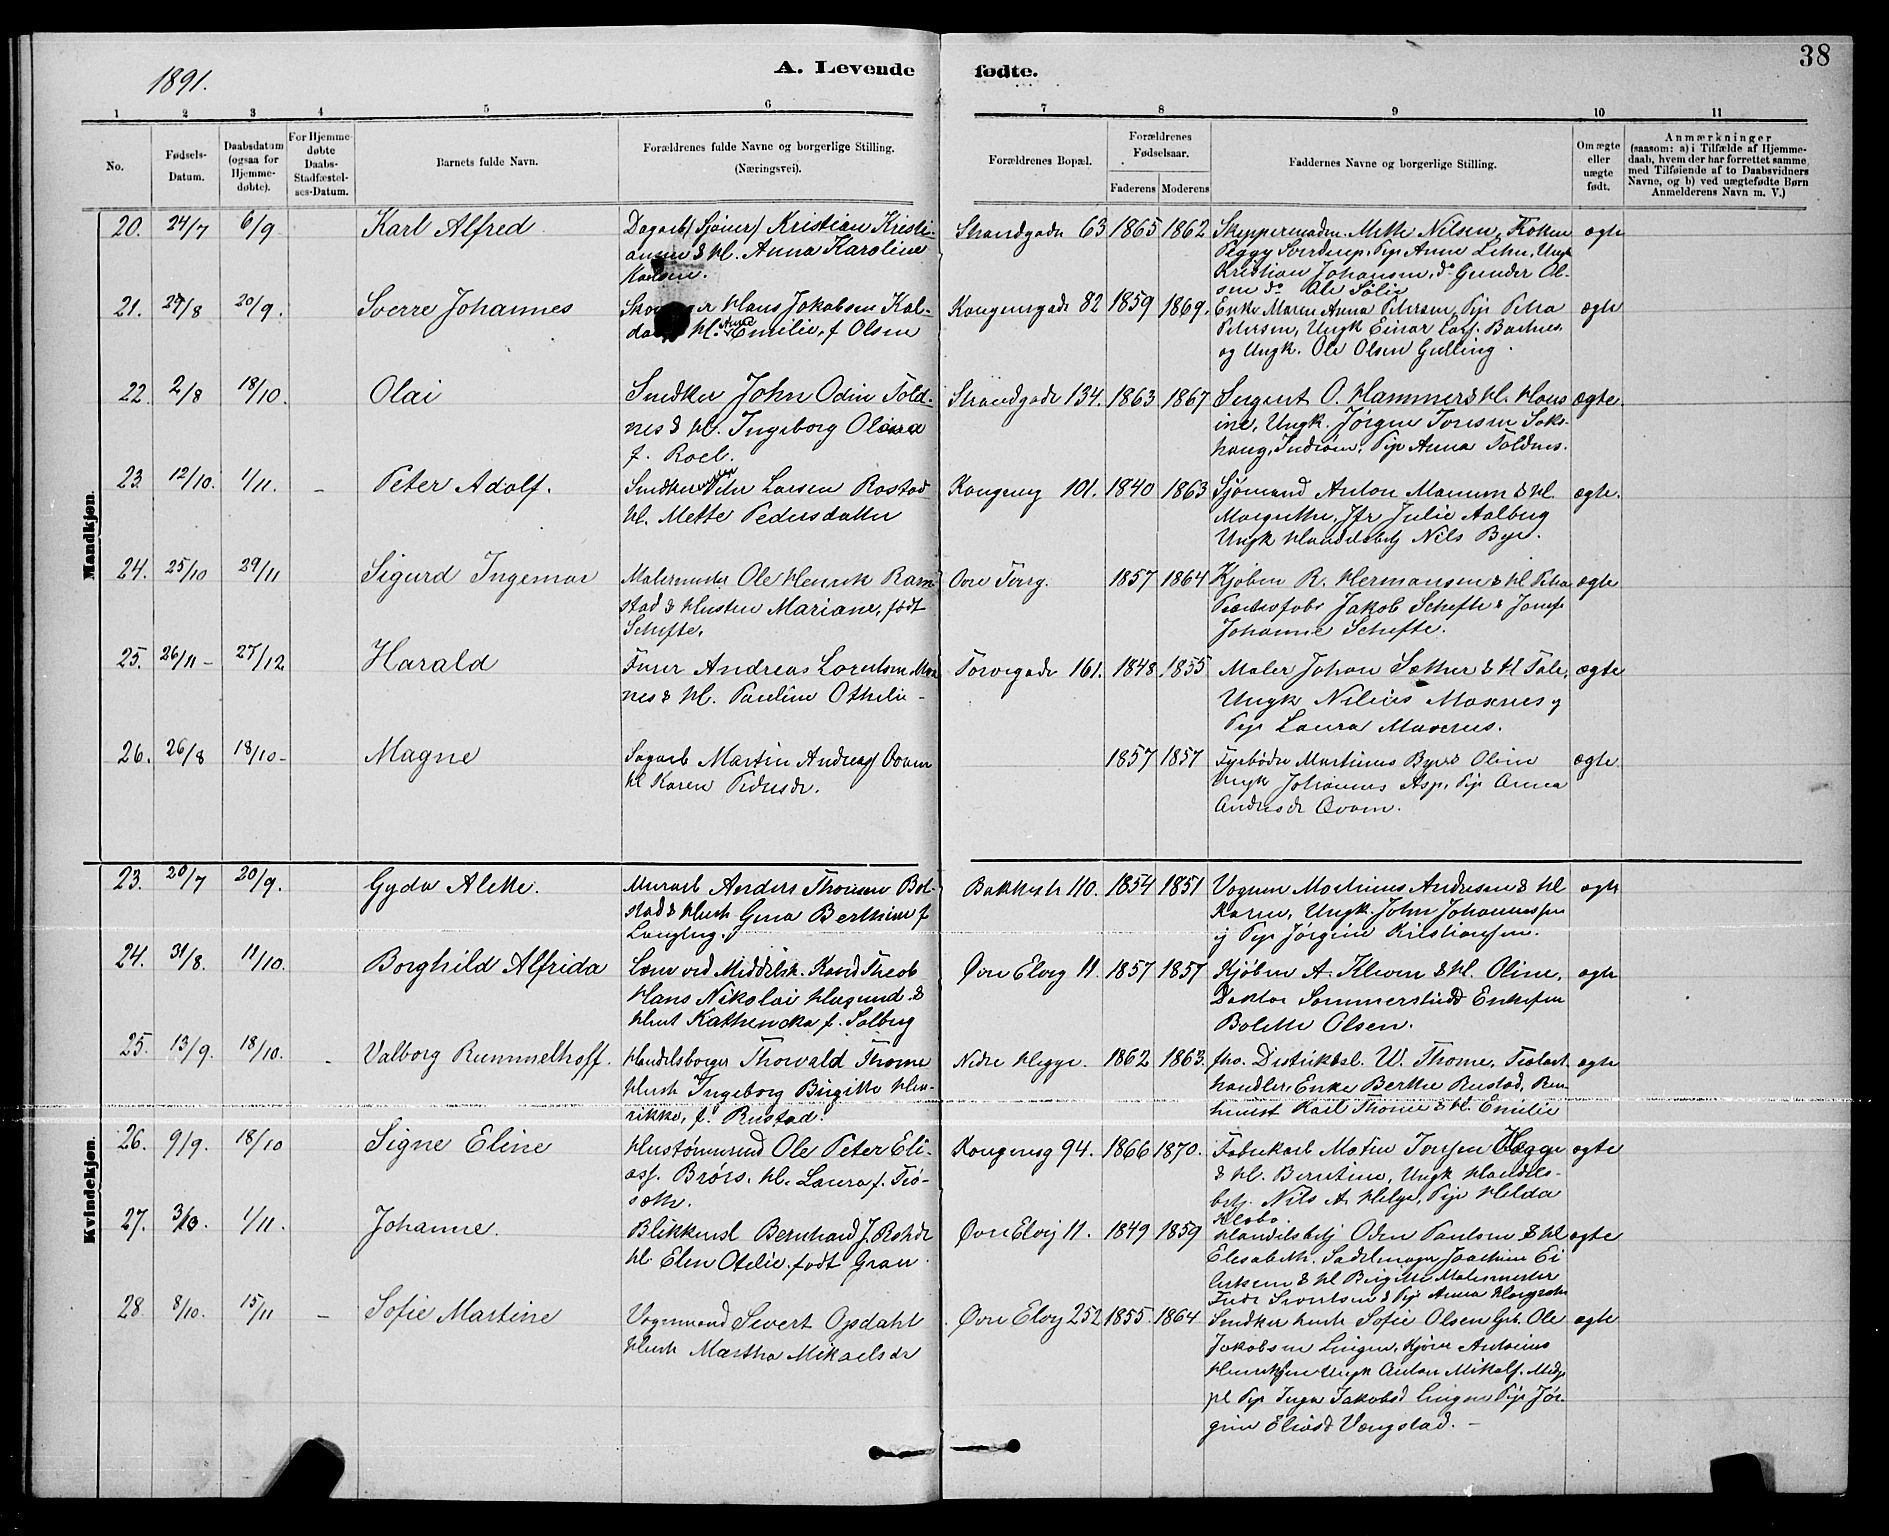 1891.
A. Levende fødte.
38
1 2 3 4 5 6 7 8 9 10 11
No.
Fødsels-Datum.
Daabsdatum (ogsaa for Hjemmedøbte).
For Hjemmedøbte Daabs-Stadfæstelses-Datum.
Barnets fulde Navn.
Forældrenes fulde Navne og borgerlige Stilling. (Næringsvei).
Forældrenes Bopæl.
Forældrenes Fødselsaar.
Faderens Moderens
Faddernes Navne og borgerlige Stilling.
Om ægte eller uægte født.
Anmærkninger
(saasom: a) i Tilfælde af Hjemmedaab, hvem der har forrettet samme med Tilføiende af to Daabsvidners Navne, og b) ved uægtefødte Børn Anmelderens Navn m. V.)
Mandkjøn.
20. 24/7 6/9 Karl Alfred
Dagarb (Sjøner) Kristian Kristi-
ansen & H. Anna Karoline
Karlsen.
Strandgade 63 1865 1862
Skippermadm. Mette Nilsen, Frøken
Peggy Sverdrup, Pige Anne Lehn, Ungk
Kristian Johansen, do Gunder Ol-
sen do Ole Sølie
ægte
21. 27/8 20/9. Sverre Johannes
Hans Jakobsen Kal-
H. Anna Emilie, f Olsen
Kongensgade 82 1859 1869.
Enke Maren Anna Petersen, Pige Petra
Petersen, Ungk Einar Barnes
og Ungk. Ole Olsen Gulling.
ægte
22. 2/8 18/10. Olai
Snedker John Odin Fold-
nes & H. Ingeborg Olava
f. Roel.
Strandgade 134. 1863 1867
Sergent O. Hammer & H. Hans
ine, Ungk. Jørgen Saks-
haug, Inderøen, Pige Anna Foldnes.
ægte.
23 12/10. 1/11. – Peter Adolf.
Snedker Peter Larsen Rostad
H. Mette Pedersdatter
Kongensg 101. 1840 1863
Sjømand Anton & H.
Margrethe, Jfr Julie Aalberg
Ungk Handelsbetj Nils Bye.
ægte.
24. 25/10 29/11 Sigurd Ingemar
Malermester Ole Henrik Ram
stad & Hustru Mariane, født
Schefte.
Øvre Torvg. 1857 1864
Kjøbm R. Hermansen & H Petra
Jakob Schefte &
Johanne Schefte.
ægte
25. 26/11 – 27/12 Harald
Furer Andreas Lorentsen
nes & H. Pauline Othelie –
Torvegade 161. 1848. 1855
Maler Johan Sæther & H Tale,
Ungk Nilius Moxnes og
Pige Laura
ægte
26. 26/8 18/10 – Magne
Sagarb Martin Andreas Ovam
H Karen Pedersdr.
1857 1857
Fyrbøder Martinus Bye & Oline
Ungk Johannes Asp, Pige Anna
Andersdr Ovam.
ægte
Kvindekjøn.
23. 20/7 20/9. Gyda Alette.
Murarb Anders Thomsen Bol-
stad & Hustr Gina Berthine f
Langberg.
Bakkestr 110. 1854 1851
Vognm Martinus Andersen & H
Karen, Ungk. John Johannessen
og Pige Jørgine Kristiansen.
ægte
24. 31/8. 11/10. Borghild Alfrida
Lærer ved Middelsk. Kand Theol
Hans Nikolai Høgund &
Hust Kathencka f. Solberg
Øvre Elvg 11. 1857 1857
Kjøbm A. Klevern & H. Oline,
Doktor Sommerschild Enkefru
Bolette Olsen.
ægte
25. 13/9. 18/10. Valborg Rummelhoff.
Handelsborger Thorvald Thorne
Hust Ingeborg Birgitte Hen-
rikke, f. Rustad.
Nedre Hegge. 1862 1863
fhv. Distriktsl. W. Thorne, Trelast
handler, Enke Berthe Rustad,
Karl Thorne & H. Emilie
ægte
26. 9/9. 18/10 Signe Eline
Hustømmermd Ole Peter Eli-
ass. Brørs. H. Laura f. Frø-
seth.
Kongensg 94. 1866 1870.
Fabrikarb Hegge
& H. Berntine, Ungk Handels-
betj. Nils A. Helge, Pige Helda
ægte
27. 3/10. 1/11. Johanne.
Blikkensl Bernhard J. Rohde
H. Elen Otelie, født Gran.
Øvre Elvg 11. 1849 1859
Handelsbetj Oden Paulsen & H
Elisabeth. Sadelmager Joachim Ei
lertsen & H Birgitte Malermester
Anna
ægte
28. 8/10. 15/11 – Sofie Martine
Vognmand Sivert Opdahl
Hust Martha Mikaelsdr
Øvre Elvg 252 1855. 1864
Snedker Hustr Sofie Olsen Grb. Ole
Jakobsen Lingen, Antonius
Henriksen Ungk Anton
Pige Inga Jakobsd Lingen Pige Jør-
gine Eliasd Vangstad. –
ægte